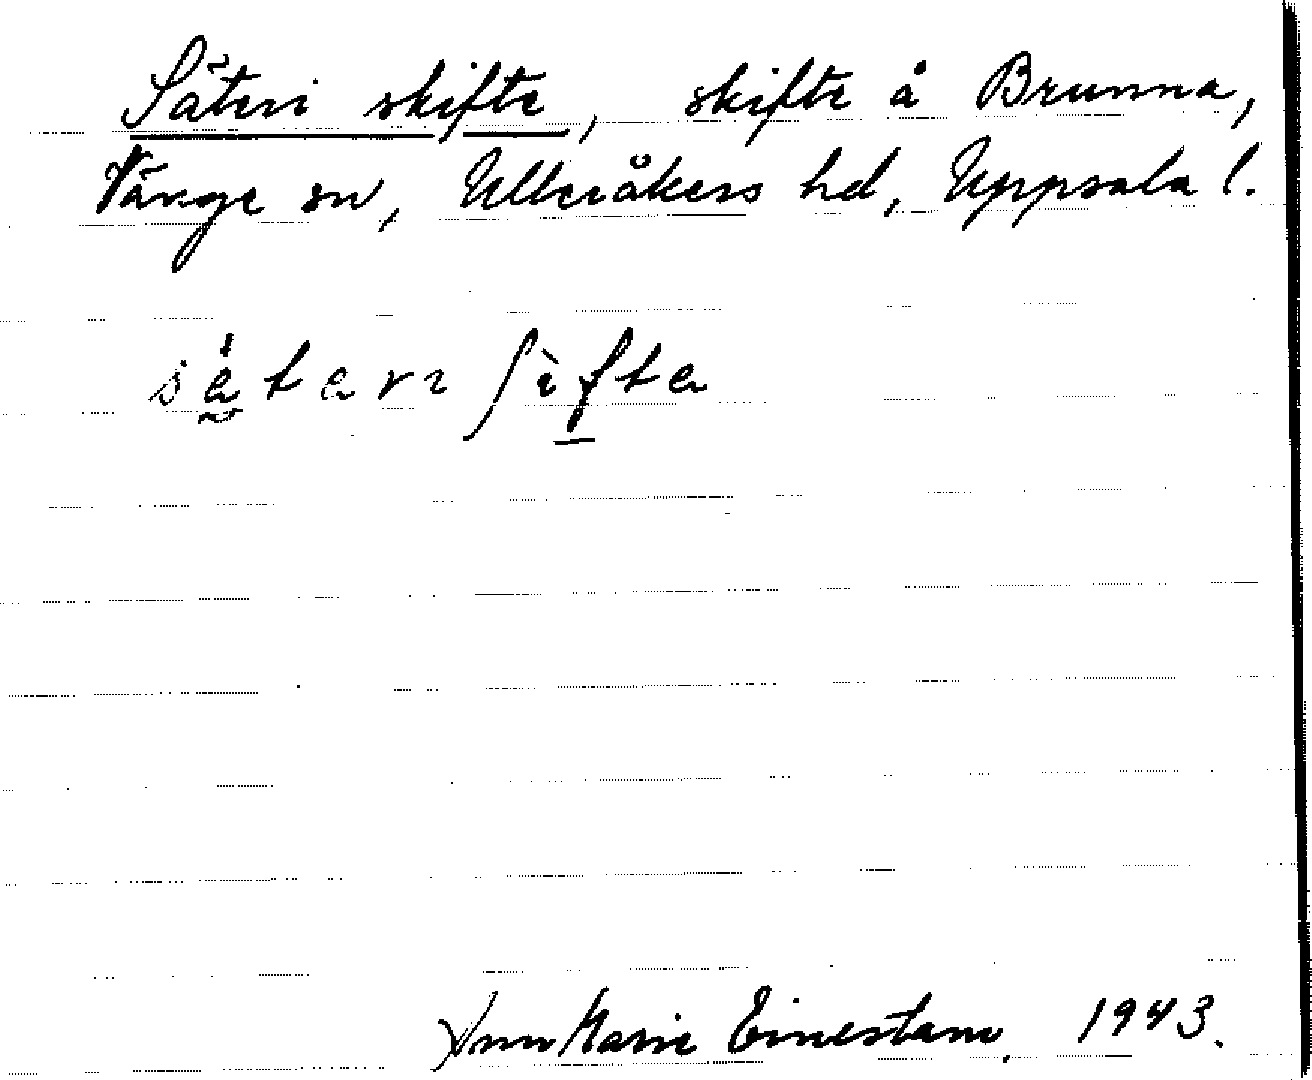 Säteri skifte, skifte å Brunna,
Vänge sn, Ulleråkers hd, Uppsala l.
sätarı ſìfta
Ann Marie Einestam. 1943.